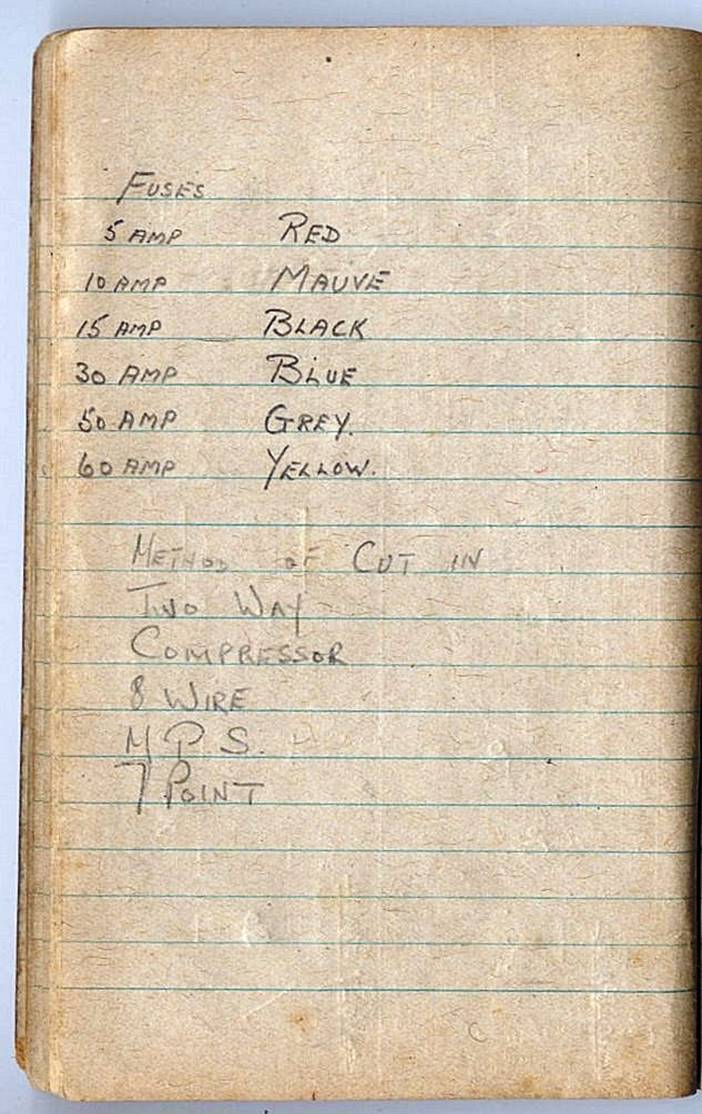 FUSES
5 AMP RED
10 AMP MAUVE
15 AMP BLACK
30 AMP BLUE
50 AMP GREY.
60 AMP YELLOW.
METHOD OF CUT IN
TWO WAY
COMPRESSOR
8 WIRE
M P. S.
7 POINT